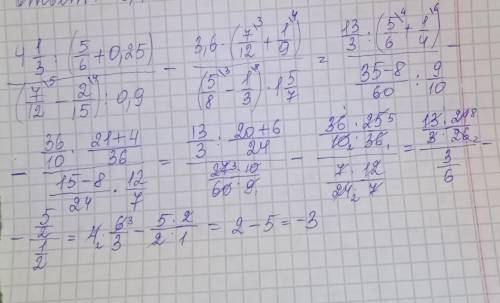 4 1/3 : (5/6 + 0,25) / (7/12\5 - 2/15\4) : 0,9 - 3,6 · (7/12\3 + 1/9\4) / (5/8\3 - 1/3\8) · 1 5/7 = 13/3 : (5/6\4 + 1/4\6) / 35-8/60 : 9/10 -
- 36/10 · 21+4/36 / 15-8/24 · 12/7 = 13/3 : 20+6/24 / 27 3 · 10/60 · 9 - 36 · 25 5/10 2 · 36 1 / 7 · 12/24 2 · 7 = 13 · 24 8/3 · 26 2 / 3/6 -
- 5/2 / 1/2 = 4 2 · 6 3/3 - 5 · 2/2 · 1 = 2 - 5 = -3